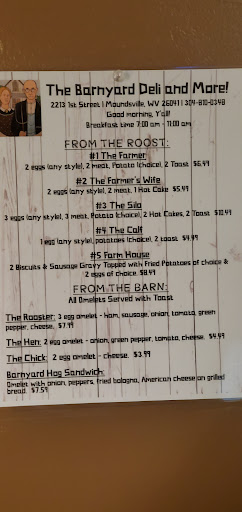 The Barnyard Deli and More!
2213 1st Street | Moundsville, WV 26041 | 304-810-0348
Good morning, Y'all!
Breakfast time 7:00 am - 11:00 am
FROM THE ROOST:
#1 The Farmer
2 eggs (any style), 2 meat, Potato (choice), 2 Toast $6.49
#2 The Farmer's Wife
2 eggs (any style), 2 meat, 1 Hot Cake $5.49
#3 The Silo
3 eggs (any style), 3 meat, Potato (choice), 2 Hot Cakes, 2 Toast $10.49
#4 The Calf
1 egg (any style), potatoes (choice), 2 toast $4.99
#5 Farm House
2 Biscuits & Sausage Gravy Topped with Fried Potatoes of choice &
2 eggs of choice $8.49
FROM THE BARN:
All Omelets Served with Toast
The Rooster: 3 egg omelet - ham, sausage, onion, tomato, green
pepper, cheese, $7.99
The Hen: 2 egg omelet - onion, green pepper, tomato, cheese, $4.99
The Chick: 2 egg omelet - cheese, $3.99
Barnyard Hog Sandwich:
Omelet with onion, peppers, fried bologna, American cheese on grilled
bread. $7.59